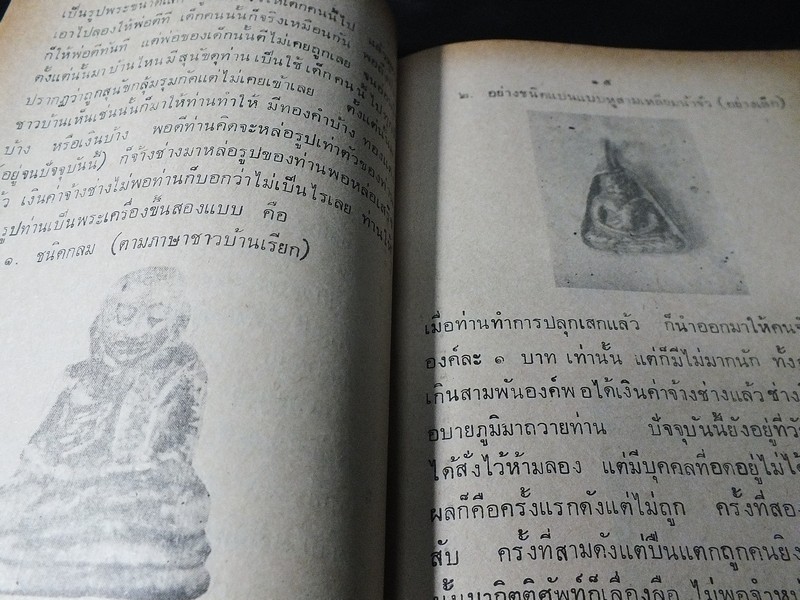 เป็นรูปพระขนาดเล็ก
เอาไปลองให้พ่อดีที เด็กคนนั้นก็จริงเหมือนกัน
ก็ให้พ่อดีทันที แต่พ่อของเด็กนั้นดีไม่เคยถูกเลย
ตั้งแต่นั้นมาบ้านไหนมีสุนัขดุท่านเป็นใช้เด็กคนนี้ไป
ปรากฏว่าถูกสุนัขกลุ้มรุมกัดแต่ไม่เคยเข้าเลย ตั้งแต่นั้น
ชาวบ้านเห็นเช่นนั้นก็มาให้ท่านทำให้ มีทองคำบ้าง
บ้าง หรือเงินบ้าง พอดีท่านคิดจะหล่อรูปเท่าตัวของท่าน
อยู่จนปัจจุบันนี้) ก็จ้างช่างมาหล่อรูปของท่านพอหล่อเสร็จ
เงินค่าจ้างช่างไม่พอท่านก็บอกว่าไม่เป็นไรเลย ท่านให้
รูปท่านเป็นพระเครื่องขึ้นสองแบบ คือ
๑. ชนิดกลม (ตามภาษาชาวบ้านเรียก)
๑๕
๒. อย่างชนิดแบนแบบหูสามเหลี่ยมหน้าจั่ว (อย่างเล็ก)
เมื่อท่านทำการปลุกเสกแล้ว ก็นำออกมาให้คน
องค์ละ ๑ บาท เท่านั้น แต่ก็มีไม่มากนัก
เกินสามพันองค์พอได้เงินค่าจ้างช่างแล้ว
อบายภูมิมาถวายท่าน ปัจจุบันนี้ยังอยู่ที่
ได้สั่งไว้ห้ามลอง แต่มีบุคคลที่อดอยู่ไม่ได้
ผลก็คือครั้งแรกดังแต่ไม่ถูก ครั้งที่สอง
สับ ครั้งที่สามดังแต่ปืนแตกถูกคนยิง
นั้นมากิตติศัพท์ก็เลื่องลือ ไม่พอจำหน่